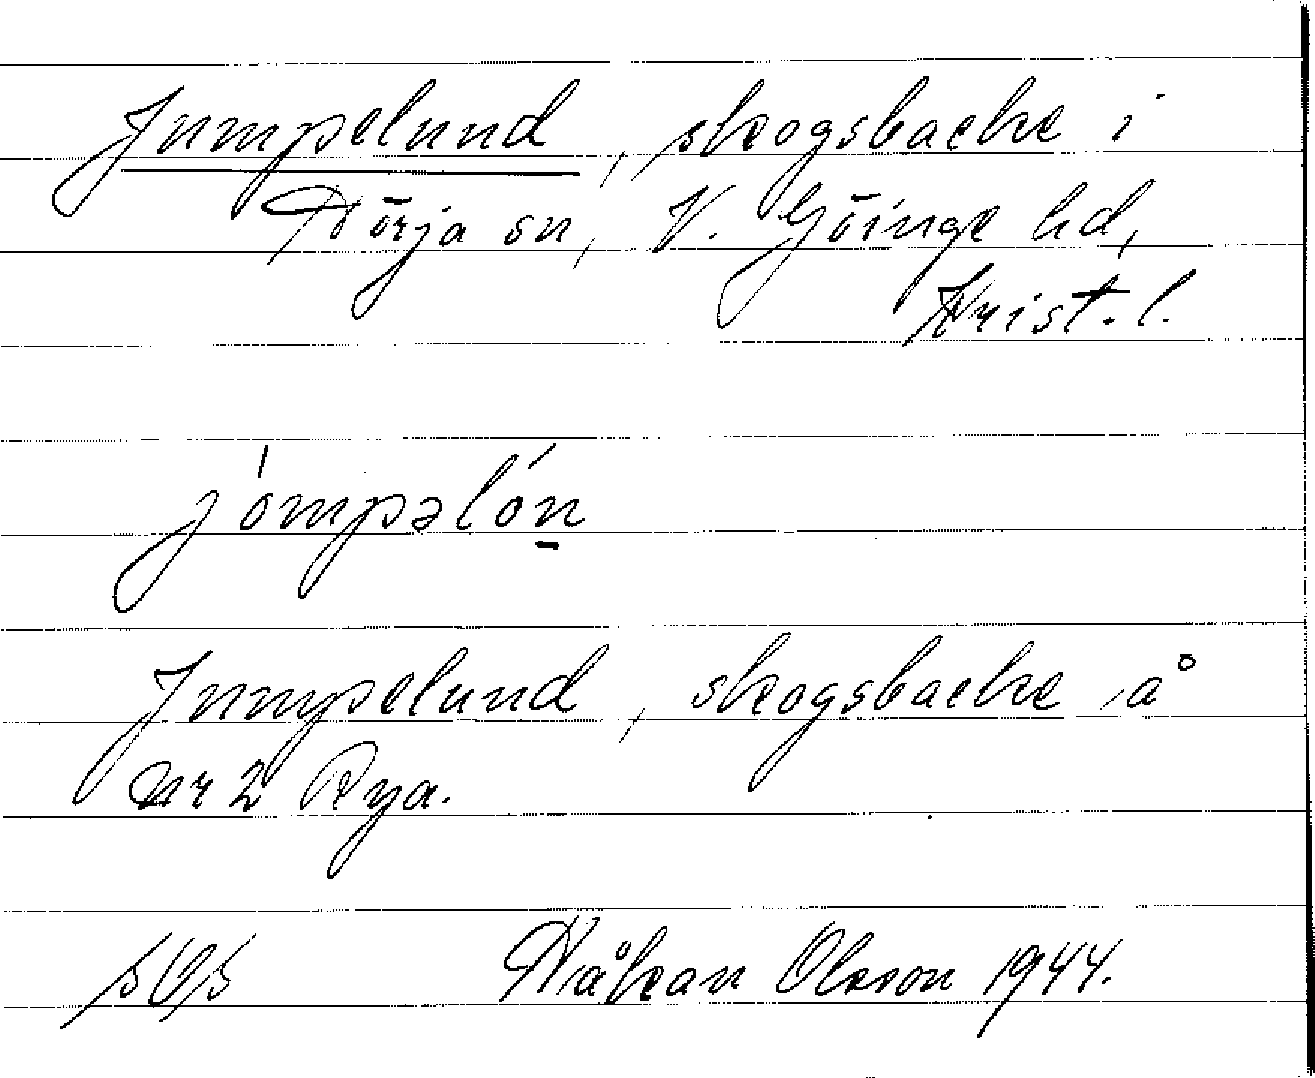 Jumpelund, skogsbacke i
Nörja sn, V. Göinge hd,
Krist. l.
jómpəlón̲
Jumpelund, skogsbacke å
nr 2 Rya.
Håkan Olsson 1944.